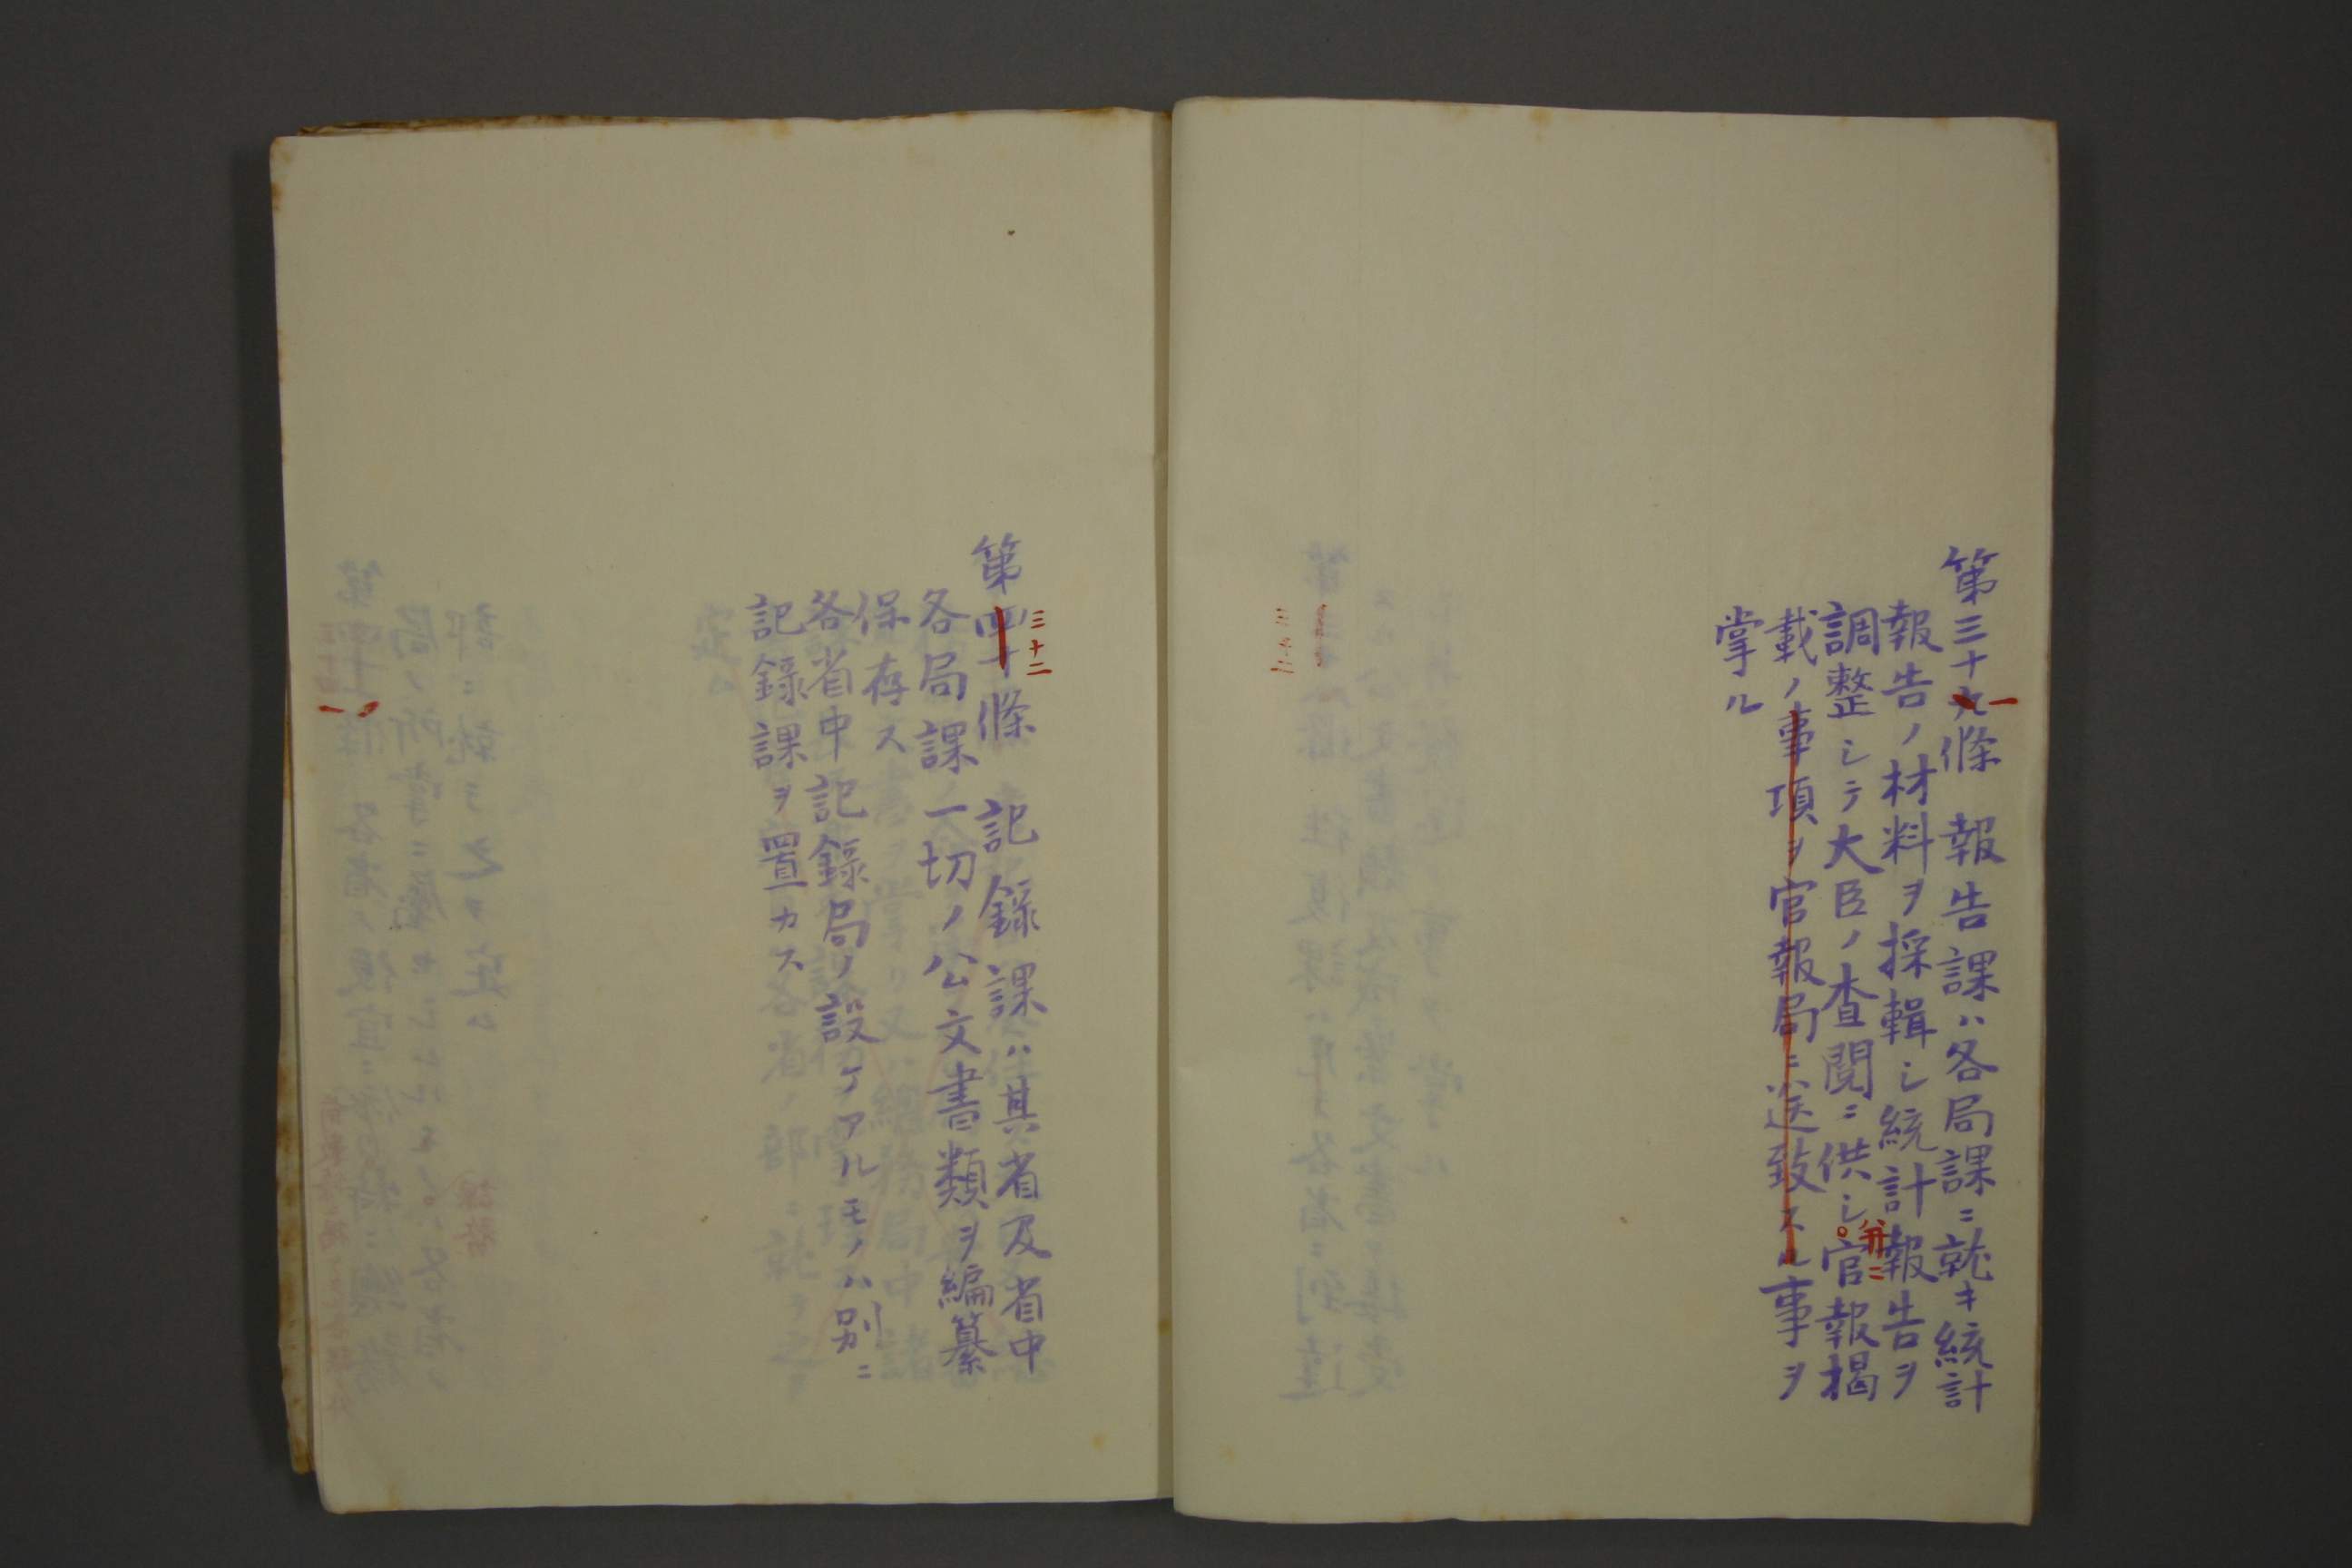 第三十九條　報告課ハ各局課ニ就キ統計
一
報告ノ材料ヲ採輯シ統計報告ヲ
調整シテ大臣ノ査閲ニ供シ官報掲
并ニ
載ノ事項ヲ官報局ニ送致スル事ヲ
掌ル
第四十條　記錄課ハ其省及省中
三十二
各局課ノ一切ノ公文書類ヲ編纂
保存ス
各省中記錄局ノ設ケアルモノハ別ニ
記錄課ヲ置カス